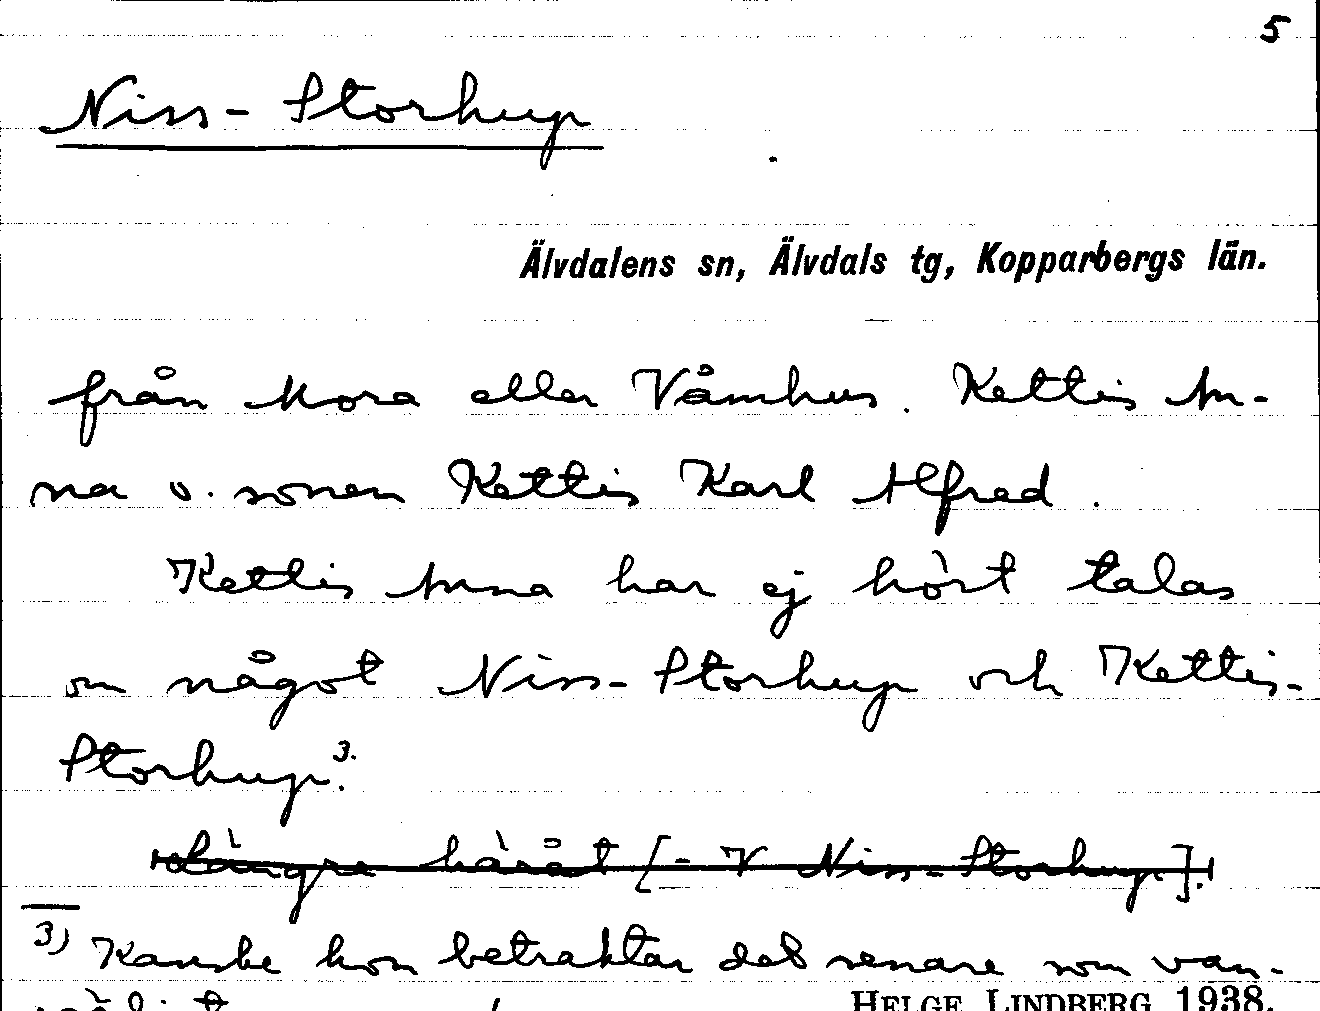 5
Niss-Storhup
Älvdalens sn, Älvdals tg, Kopparbergs län.
från Mora eller Våmhus. Kettis An-
na o. sonen Kettis Karl Alfred.
Kettis Anna har ej hört talas
om något Niss-Storhup och Kettis-
Storhup.3.
Längre häråt [- V Niss-Storhup].
3) Kanske hon betraktar det senare som van-
HELGE LINDBERG 1938.